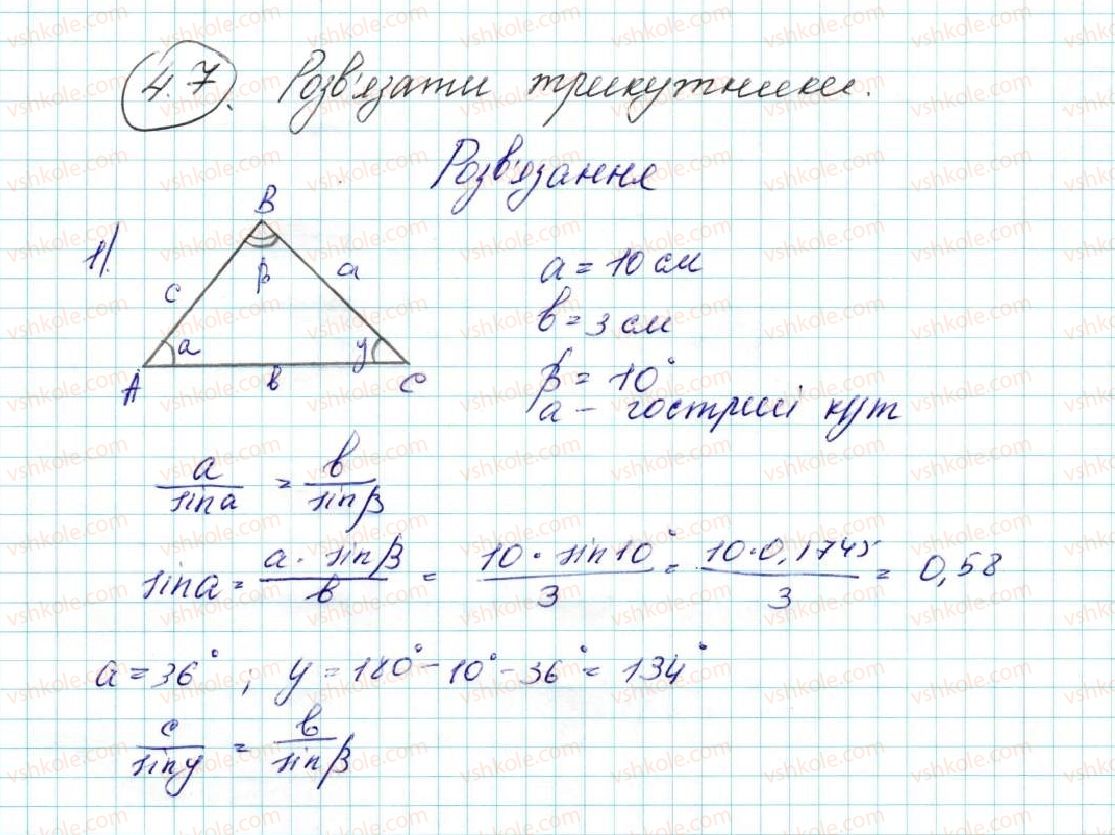 4.7. Розв'язати трикутники.
Розв'язання
1).
B
β
c
a
a
y
A
в
C
a = 10 см
в = 3 см
β = 10°
a - гострий кут
a / sin a = в / sin β
sin a = a · sin β / в = 10 · sin 10° / 3 = 10 · 0,1745 / 3 = 0,58
a = 36° ; y = 180° - 10° - 36° = 134°
c / sin y = в / sin β
vshkole.com